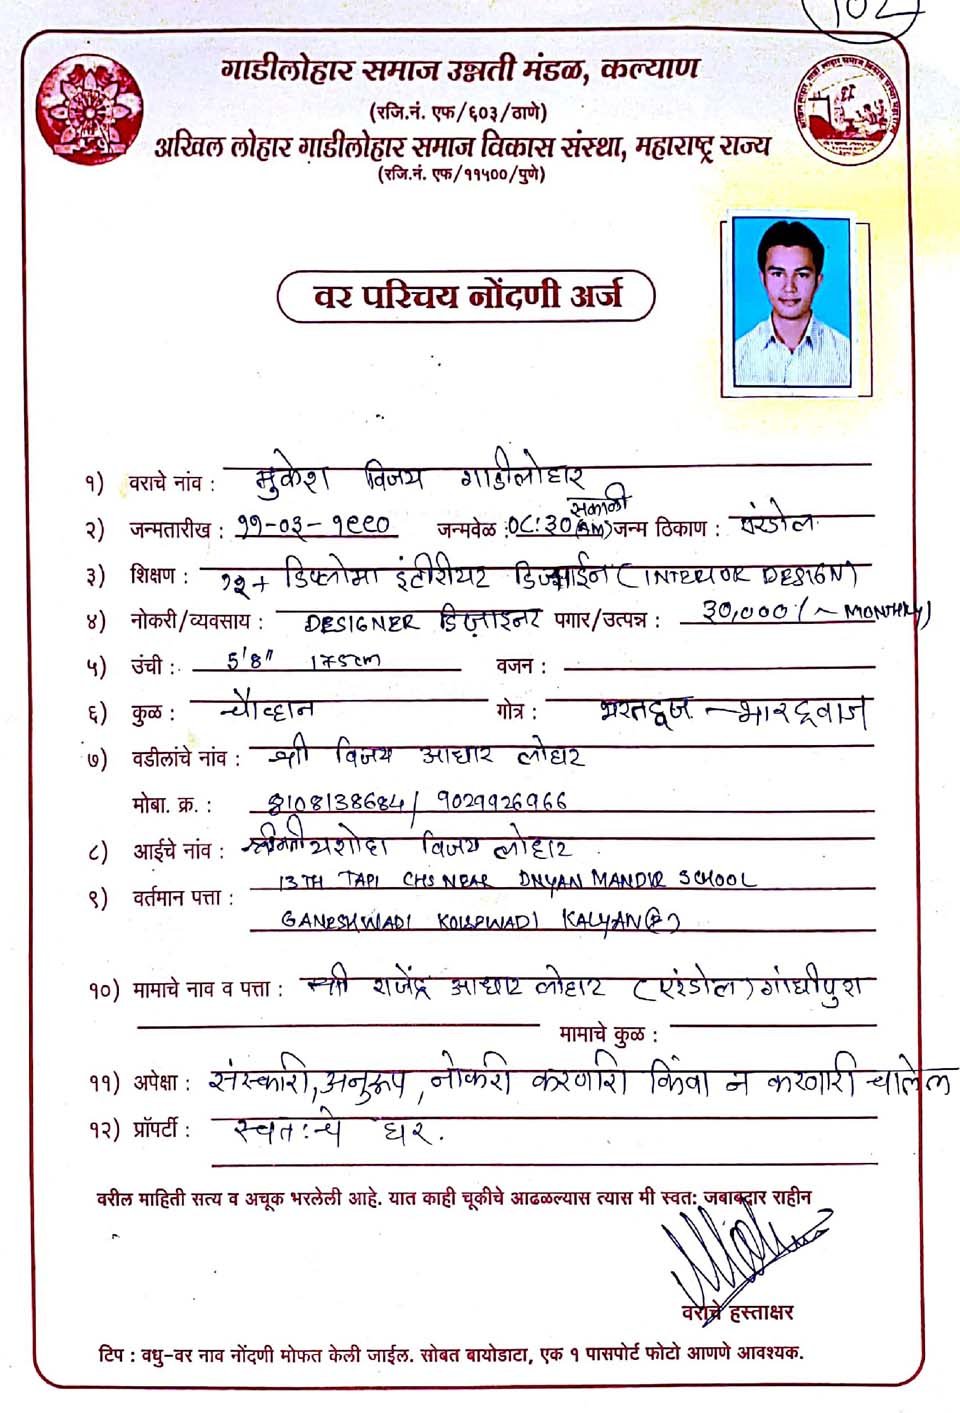 102
गाडीलोहार समाज उन्नती मंडळ, कल्याण
(रजि.नं. एफ/६०३/ठाणे)
अखिल लोहार गाडीलोहार समाज विकास संस्था, महाराष्ट्र राज्य
(रजि.नं. एफ/११५००/पुणे)
वर परिचय नोंदणी अर्ज
१) वराचे नांव : मुकेश विजय गाडीलोहार
२) जन्मतारीख : ११-०३-१९९० जन्मवेळ : ०८:३० सकाळी (AM) जन्म ठिकाण : एरंडोल
३) शिक्षण : १२ + डिप्लोमा इंटीरीयर डिझाईन (INTERIOR DESIGN)
४) नोकरी/व्यवसाय : DESIGNER डिज़ाइनर पगार/उत्पन्न : 30,000/~ MONTHLY)
५) उंची : 5'8" 175cm वजन :
६) कुळ : चौव्हान गोत्र : भरतद्वज - भारद्वाज
७) वडीलांचे नांव : श्री विजय आधार लोहार
मोबा. क्र. : 8108138684 / 9029926966
८) आईचे नांव : श्रीमती यशोदा विजय लोहार
९) वर्तमान पत्ता : 13TH TAPI CHS NEAR DNYAN MANDIR SCHOOL
GANESHWADI KOLSEWADI KALYAN (E)
१०) मामाचे नाव व पत्ता : श्री राजेंद्र आधार लोहार (एरंडोल) गांधीपुरा
मामाचे कुळ :
११) अपेक्षा : संस्कारी, अनुरूप, नोकरी करणारी किंवा न करणारी चालेल
१२) प्रॉपर्टी : स्वतःचे घर.
वरील माहिती सत्य व अचूक भरलेली आहे. यात काही चूकीचे आढळल्यास त्यास मी स्वतः जबाबदार राहीन
वराचे हस्ताक्षर
टिप : वधु-वर नाव नोंदणी मोफत केली जाईल. सोबत बायोडाटा, एक १ पासपोर्ट फोटो आणणे आवश्यक.